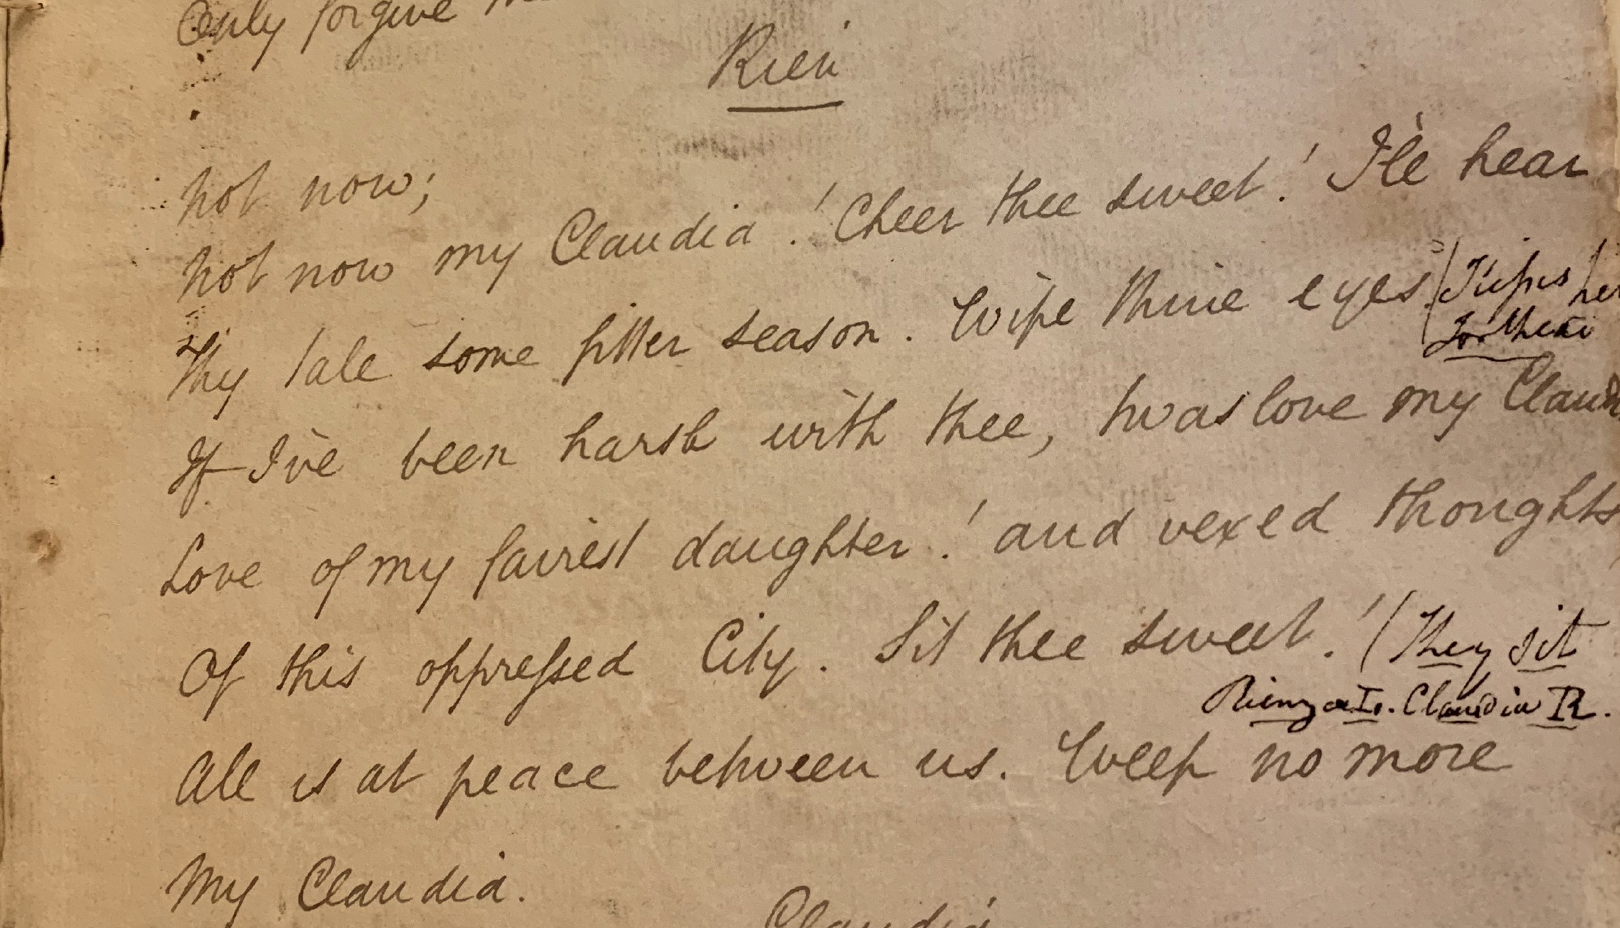 Only forgive
Rien
Not now;
Not now my Claudia! Cheer thee sweet! I'le hear
Thy tale some fitter season. Wipe thine eyes (Kisses her
forehead
If I've been harsh with thee, twas love my Claud
Love of my fairest daughter! and vexed thoughts
Of this oppressed City. Sit thee sweet! (They sit
Rienzi L. Claudia R.
All is at peace between us. Weep no more
My Claudia.
Claudia